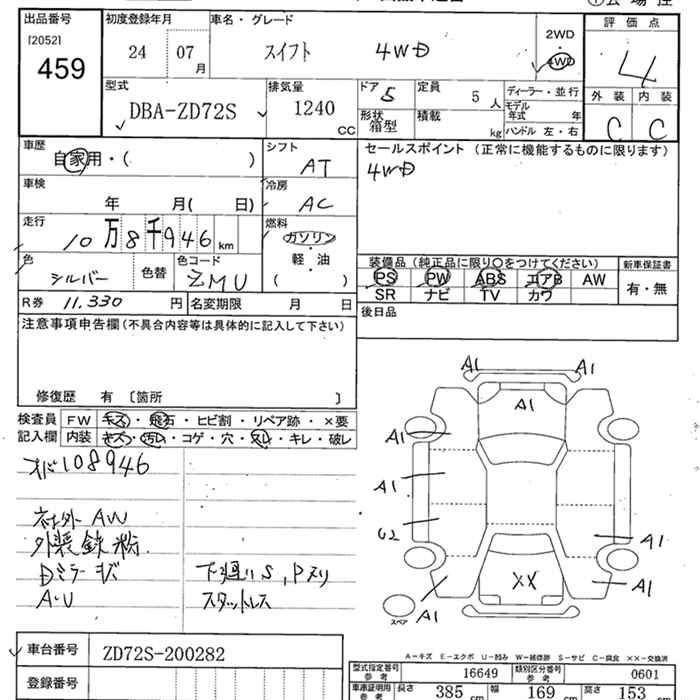 出品番号 初度登録年月 車名・グレード 2WD 評価点
[2052] 24 07 月 スイフト 4WD 4WD 4
459 型式 排気量 ドア 5 定員 5 人 ディーラー・並行 外装 内装
DBA-ZD72S 1240 CC 形状 箱型 積載 kg モデル年式 年 C C
ハンドル 左・右
車歴 自家用・( ) シフト AT セールスポイント (正常に機能するものに限ります)
4WD
車検 年 月( 日) 冷房 AC
走行 10万8千946 km 燃料 ガソリン
色 シルバー 色替 色コード ZMU 軽油 ( )
装備品 (純正品に限り○をつけてください) 新車保証書
PS PW ABS エアB AW 有・無
SR ナビ TV カワ
R券 11,330 円 名変期限 月 日 後日品
注意事項申告欄 (不具合内容等は具体的に記入して下さい)
修復歴 有 〔箇所 〕
検査員 FW キズ・飛石・ヒビ割・リペア跡・×要
記入欄 内装 キズ・汚れ・コゲ・穴・スレ・キレ・破レ
メーター108946
社外 AW
外装鉄粉
Dミラーキズ 下廻りS,Pスリ
A・U スタットレス
A1 A1
A1
A1
A1
U2 A1
XX
A1 A1
スペア
A-キズ E-エクボ U-凹み W-補修跡 S-サビ C-腐食 XX-交換済
車台番号 ZD72S-200282
型式指定番号 参考 16649 類別区分番号 参考 0601
登録番号
車庫証明用 参考 長さ 385 cm 幅 169 cm 高さ 153 cm